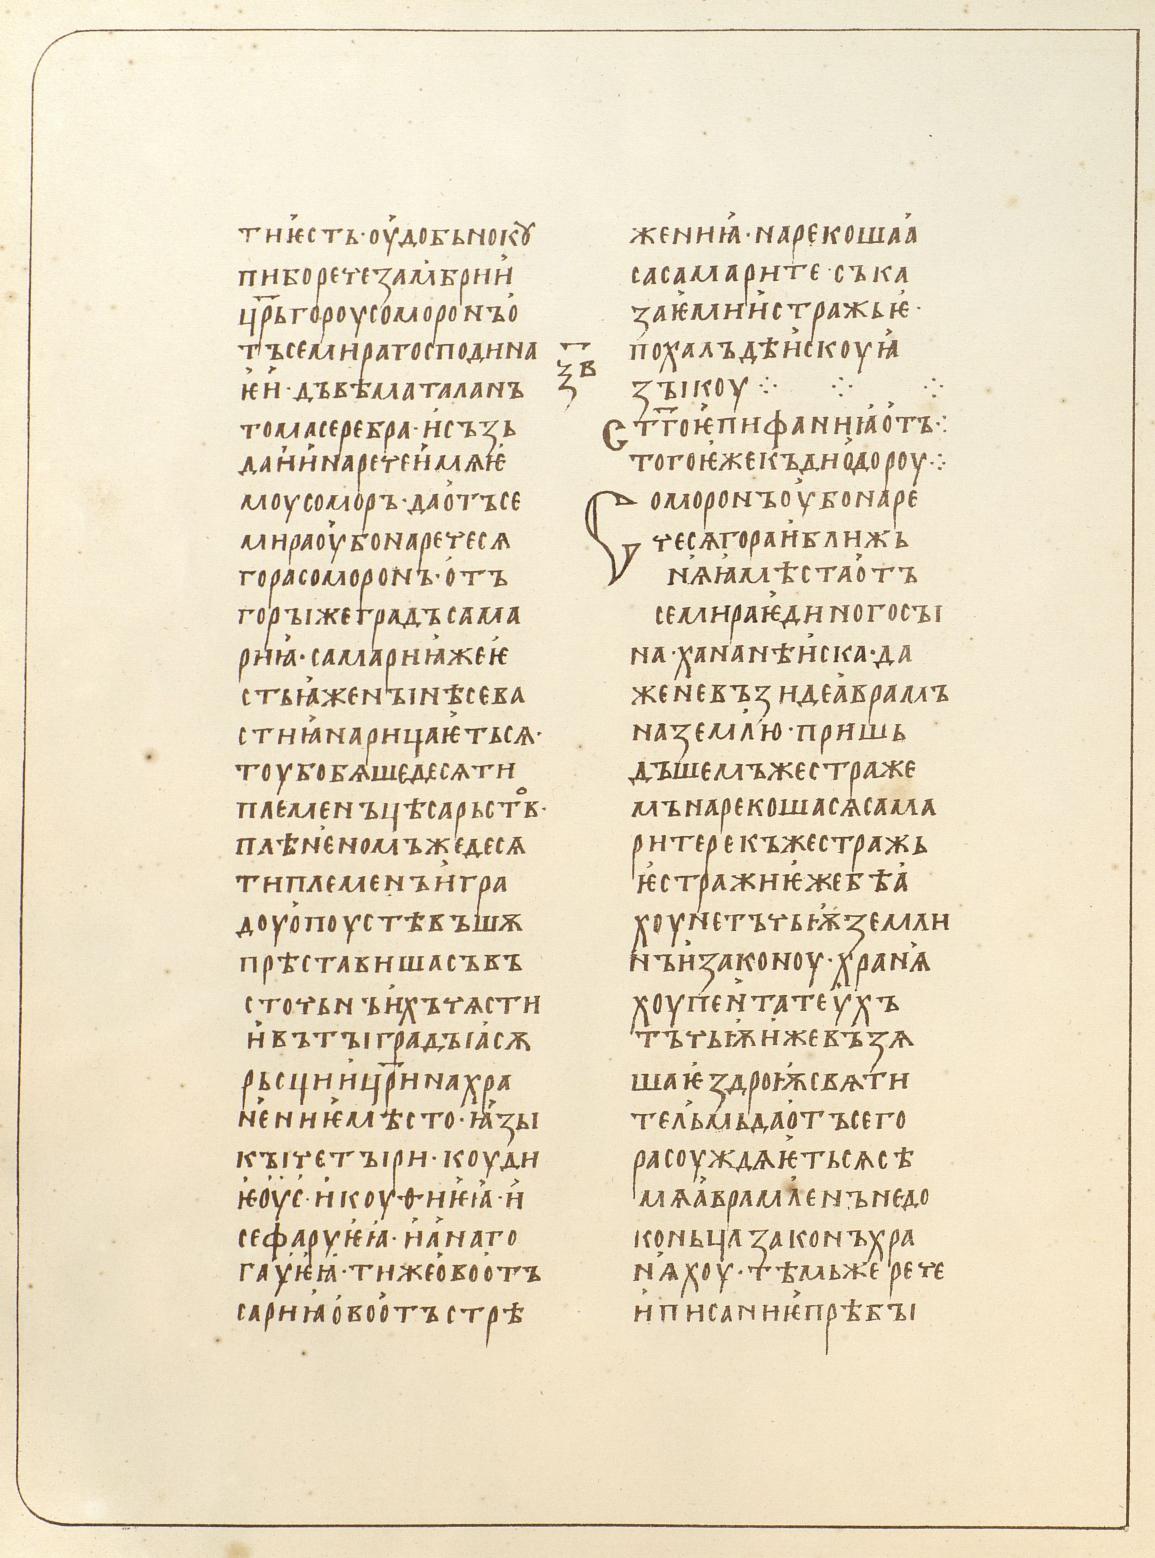 тиѥсть·оудобьнокꙋ
пиборечезамбрии
цр҃ьгороусоморонъо
тъсемирагосподина
ѥи·дъвѣматаланъ
томасеребра·исъзь
даиинаречеимяѥ
моусоморъ·даотъсе
мираоубонаречеся
горасоморонъ·отъ
горыжеградъсама
риꙗ·самариꙗжеѥ
стьꙗженынѣсева
стиꙗнарицаѥться·
тоубобѧшедесѧти
племенъцѣсарьств·
плѣненомъжедесѧ
типлеменъигра
доуопоустѣвъшѫ
прѣставишасъвъ
сточьнъихъчѧсти
ивътыградыасѫ
рьсциицр҃инахра
нениѥмѣсто·ꙗзы
кычетыри·коуди
ѥоус·икоуѳиѥꙗ·и
сефаруѥꙗ·ианаго
гауѥꙗ·тижеовоотъ
сариꙗовоотъстрѣ
жениꙗ·нарекошаа
сасамарите·съка
заѥмиистражьѥ·
похалъдѣискоуꙗ
з҃в
зыкоу
ст҃гоѥпифаниꙗотъ
тогоѥжекъдиодороу
Соморонъоубонаре
чесѧгораиближь
нѧꙗмѣстаотъ
семираѥдиногосы
на·хананѣиска·да
женевъзидеаврамъ
наземлю·пришь
дъшемъжестраже
мънарекошасѧсама
ритерекъжестражь
ѥстражиѥжебѣа
хоунетъчьѭземли
нъизаконоу·хранѧ
хоупентатеухъ
тъчьѭижевъзѧ
шаѥздроѭсвѧти
тельмьдаотъсего
расоуждѧѥтьсѧсѣ
мѧаврамленънедо
коньцазаконъхра
нѧхоу·тѣмьжерече
иписаниѥпрѣбы